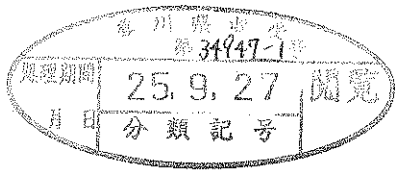 香川県収受
第34947-1号
処理期間
25.9.27
閲覧
月 日
分類記号